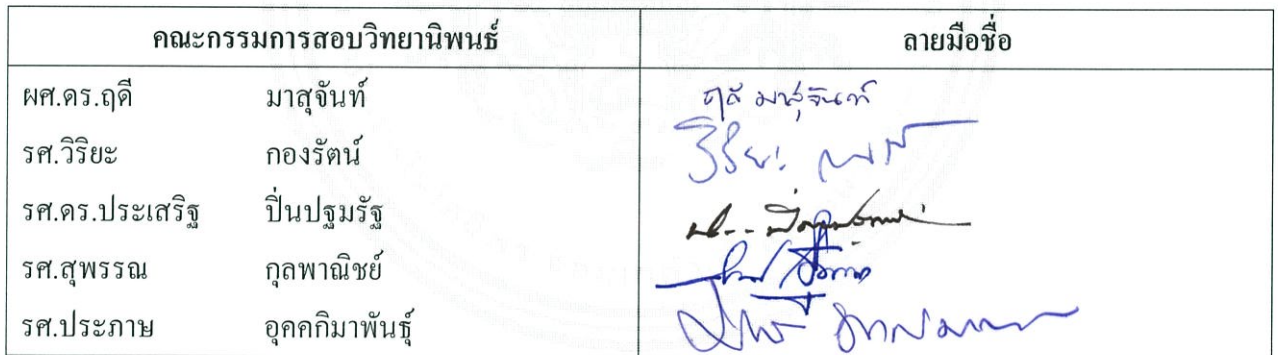 คณะกรรมการสอบวิทยานิพนธ์ ลายมือชื่อ
ผศ.ดร.ฤดี มาสุจันท์ ฤดี มาสุจันท์
รศ.วิริยะ กองรัตน์ วิริยะ
รศ.ดร.ประเสริฐ ปิ่นปฐมรัฐ
รศ.สุพรรณ กุลพาณิชย์
รศ.ประภาษ อุคคกิมาพันธุ์